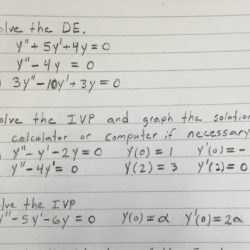 olve the DE.
y" + 5y' + 4y = 0
y" - 4y = 0
3y" - 10y' + 3y = 0
olve the IVP and graph the solut
calculator or computer if necessary
y" - y' - 2y = 0 y(0) = 1 y'(0) = -
y" - 4y' = 0 y(2) = 3 y'(2) = 0
olve the IVP
y" - 5y' - 6y = 0 y(0) = α y'(0) = 2α